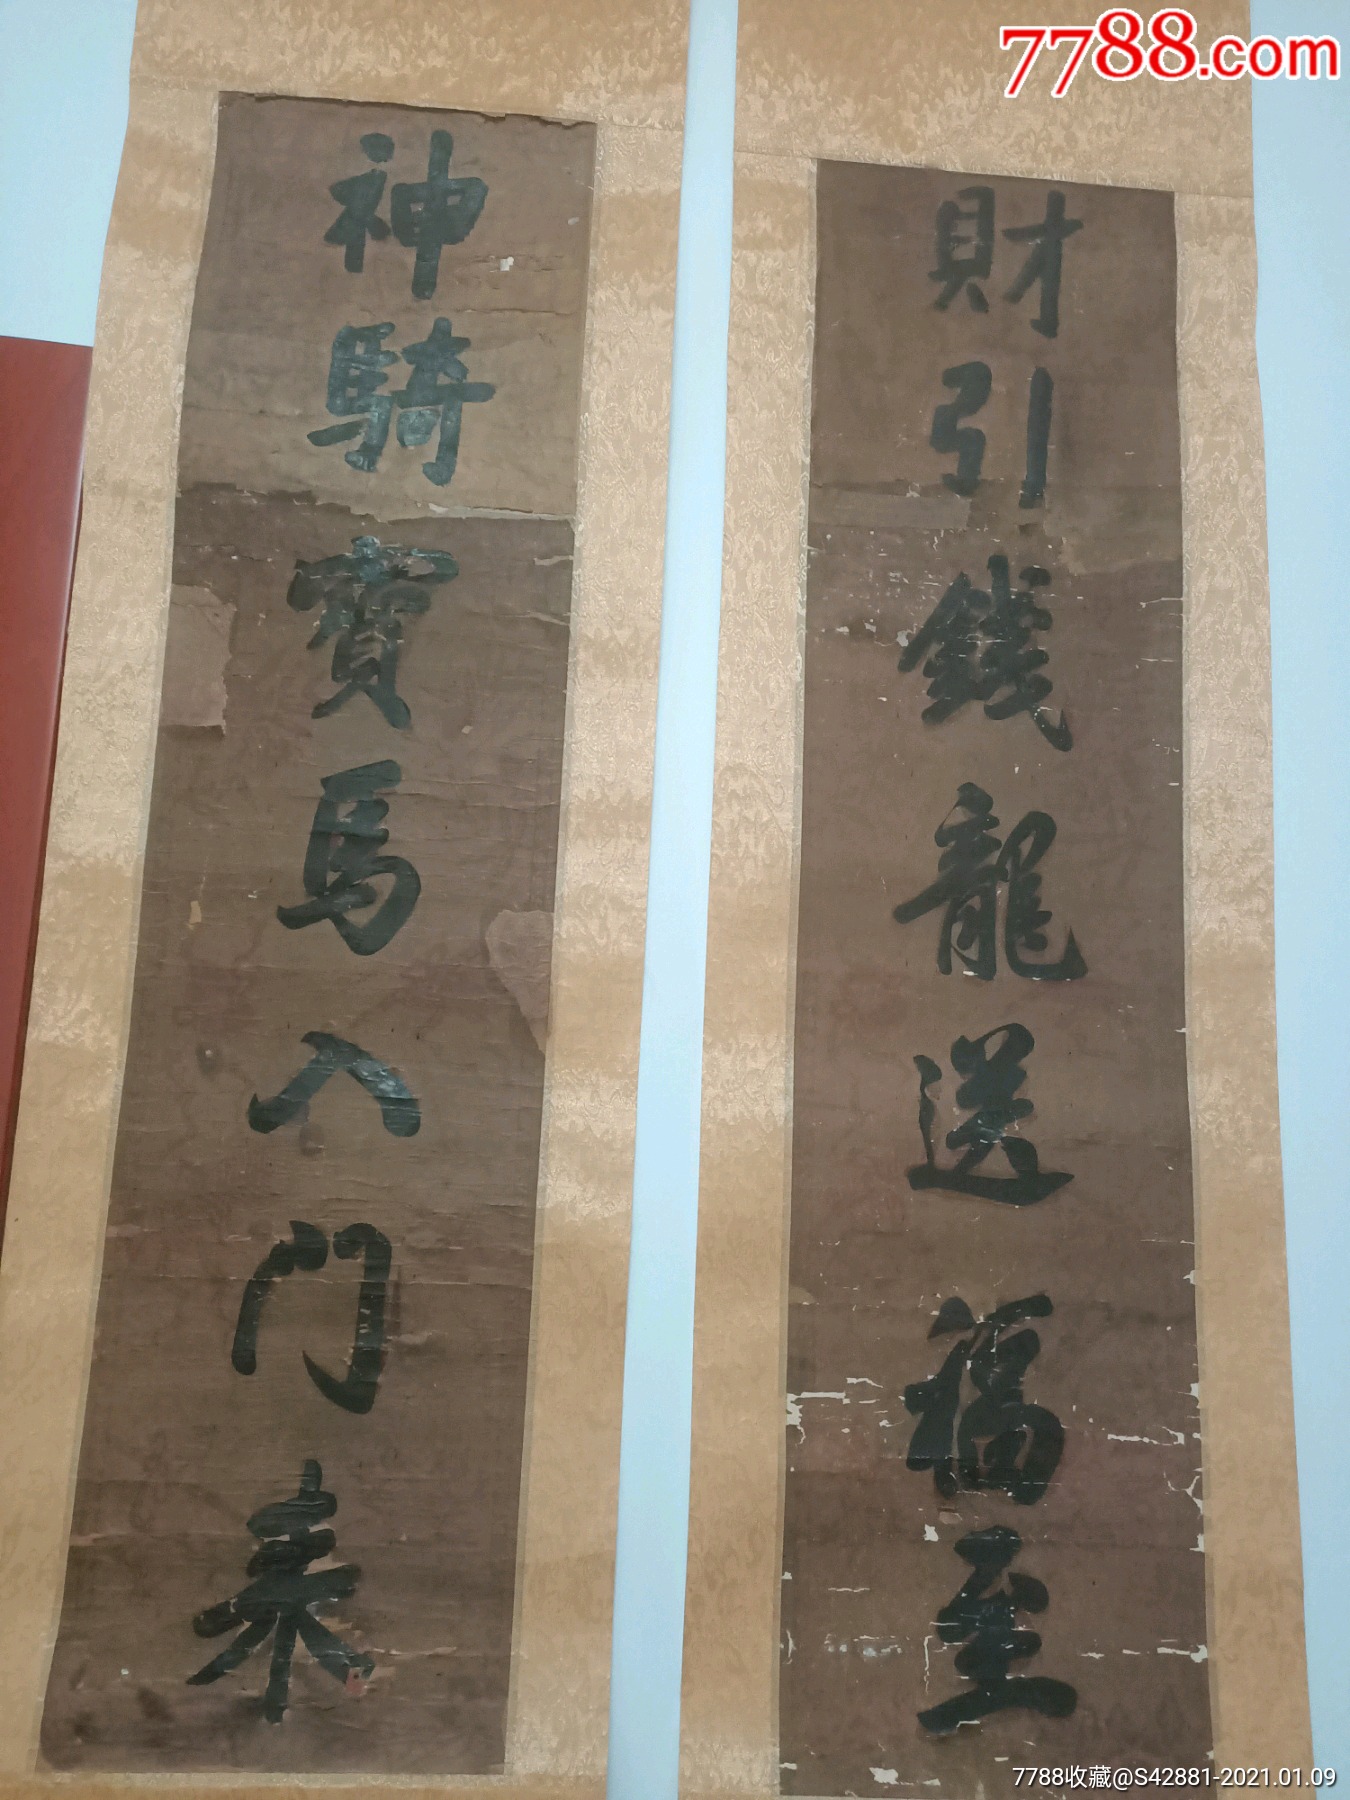 7788.com
財引錢龍送福至
神騎寶馬入門来
7788收藏@S42881-2021.01.09